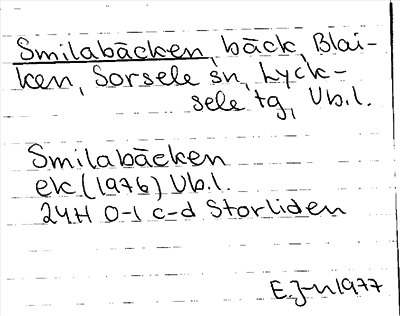 Smilabäcken, bäck, Blai-
ken, Sorsele sn, Lyck-
sele tg, Vb.l.
Smilabäcken
ek (1976) Vb.l.
24H 0-1 c-d Storliden
E.J-n 1977